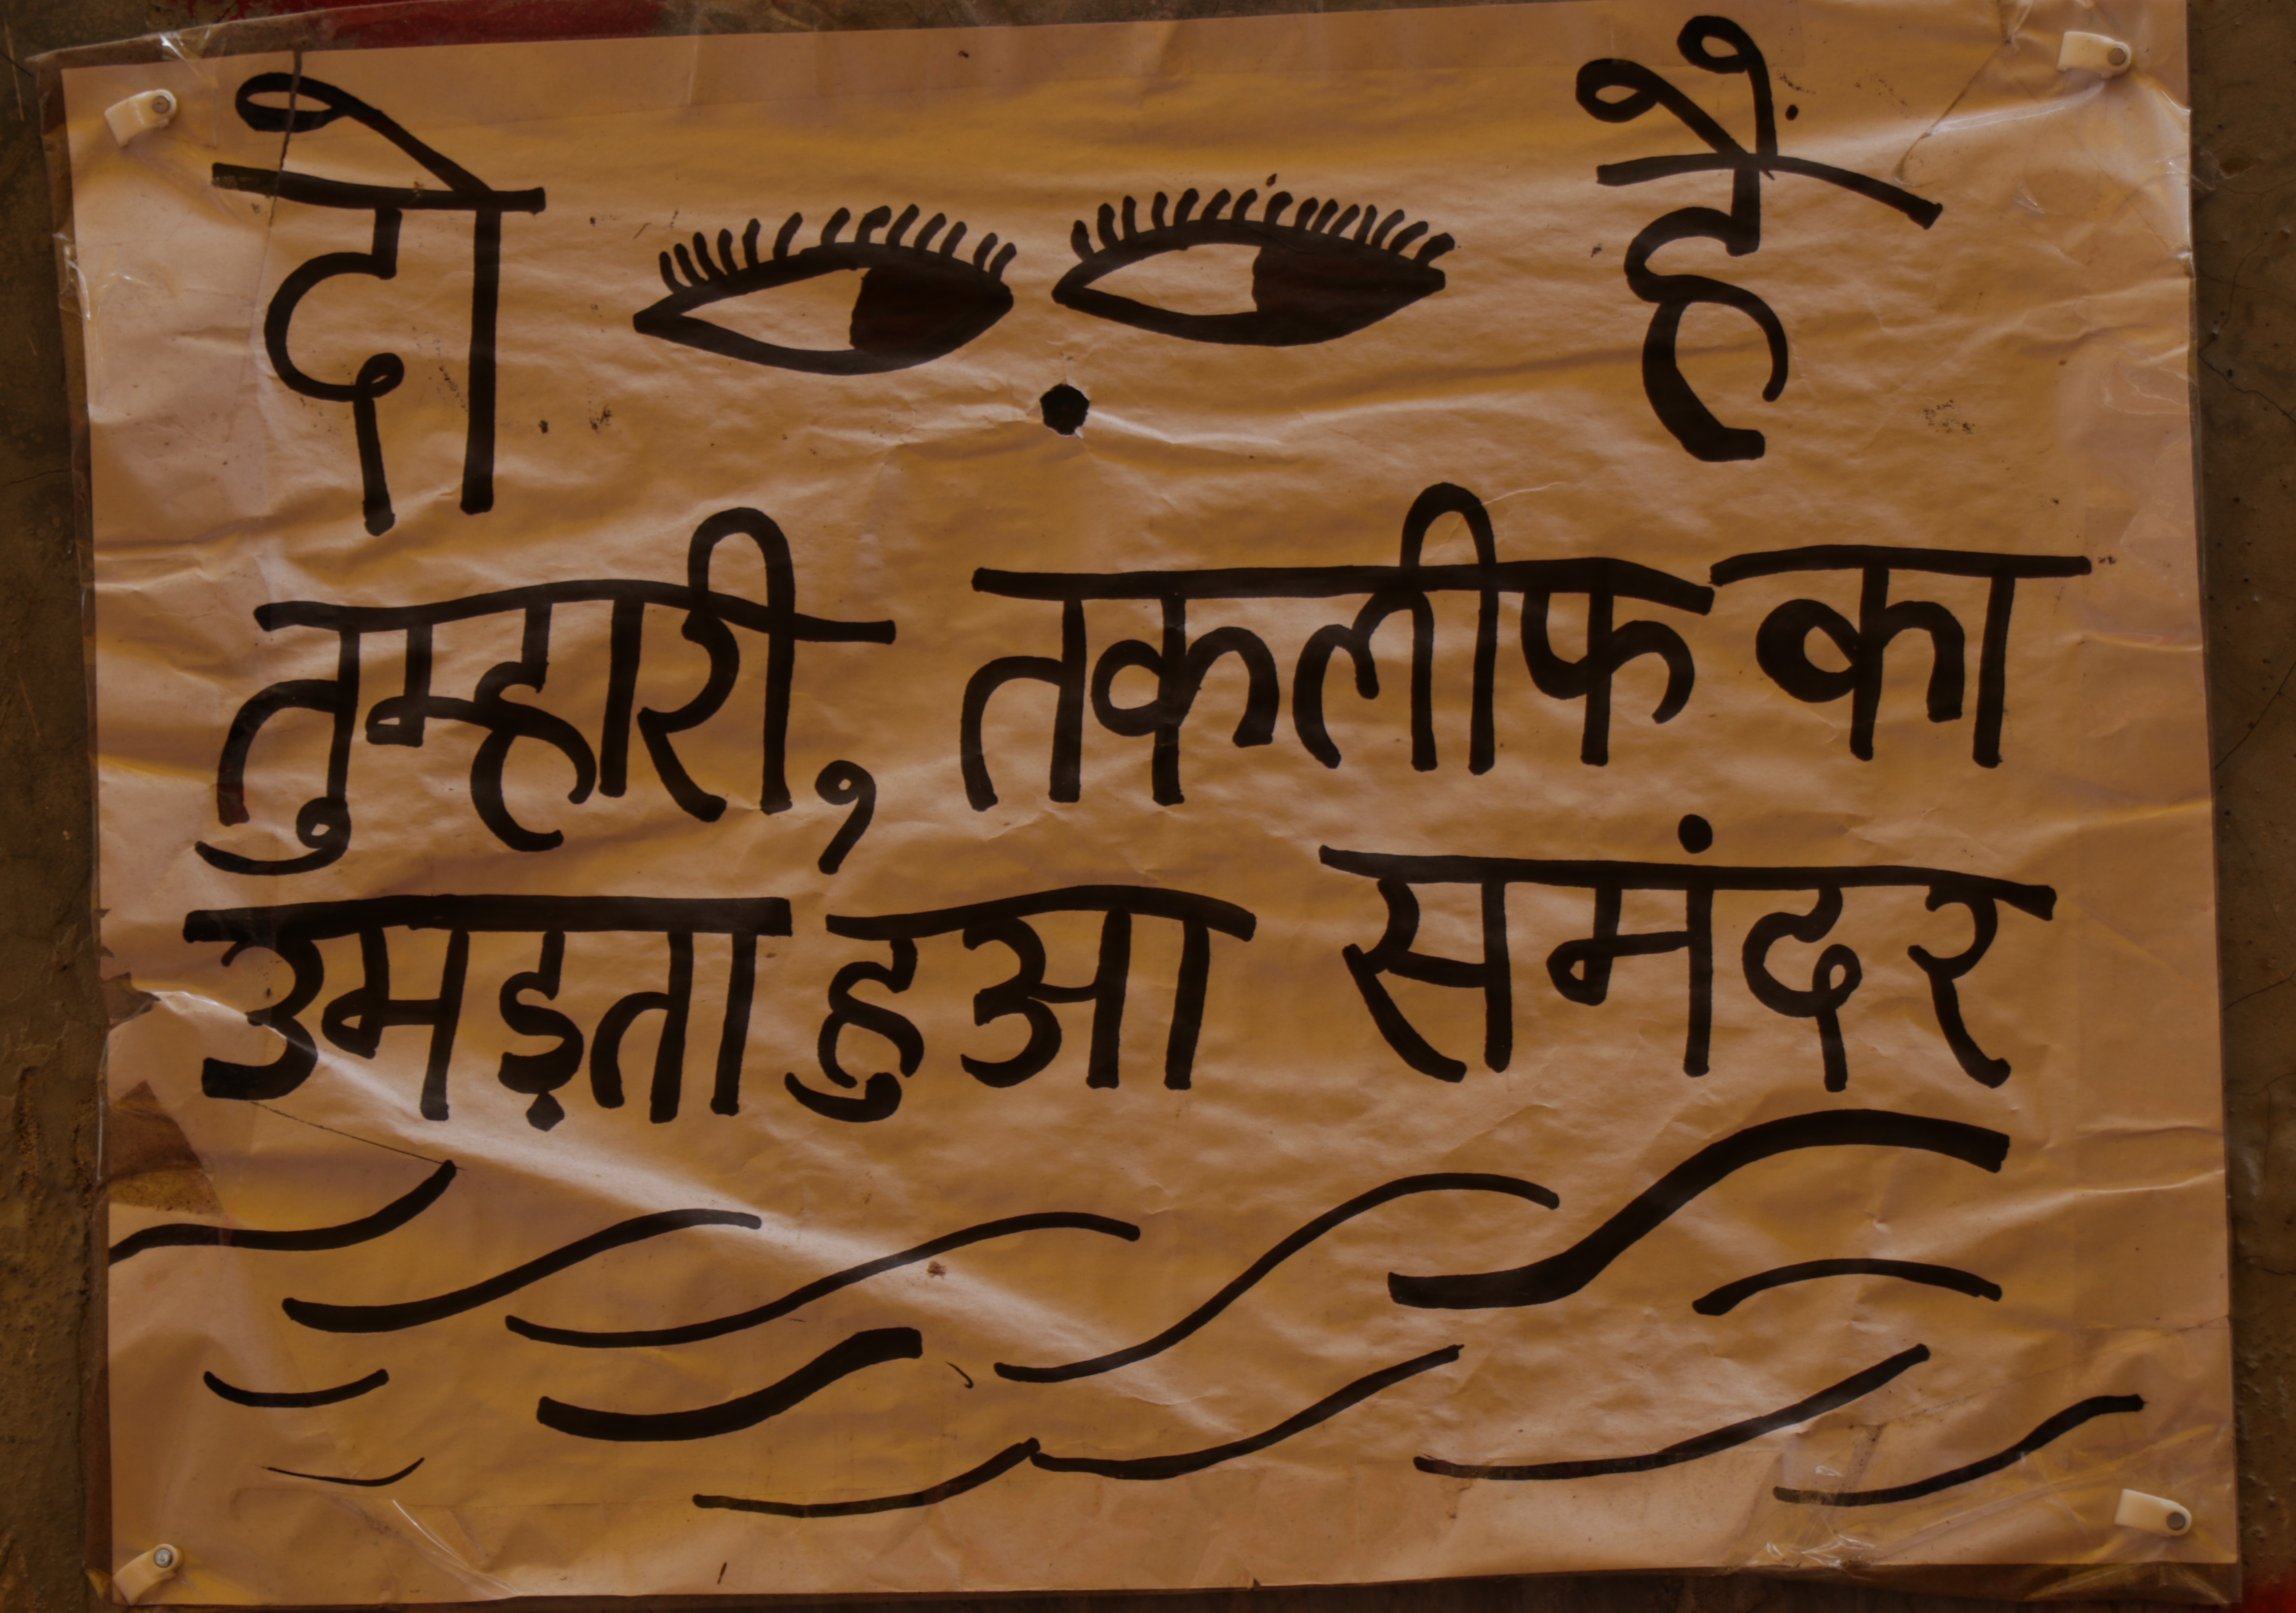 दो हैं
तुम्हारी, तकलीफ का
उमड़ता हुआ समंदर